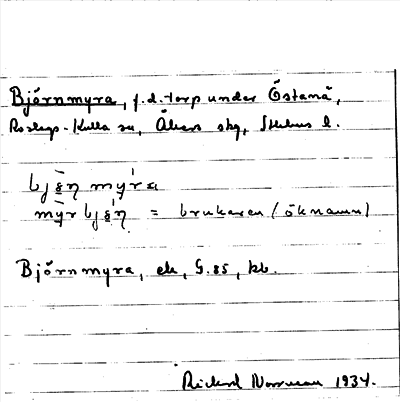 Björnmyra, f.d. torp under Östanå,
Roslags-Kulla sn, Åkers skg, Sthlms l.
bjön myra
myrbjön = brukaren (öknamn)
Björnmyra, ek, G.85, kb.
Rickard Norrman 1934.